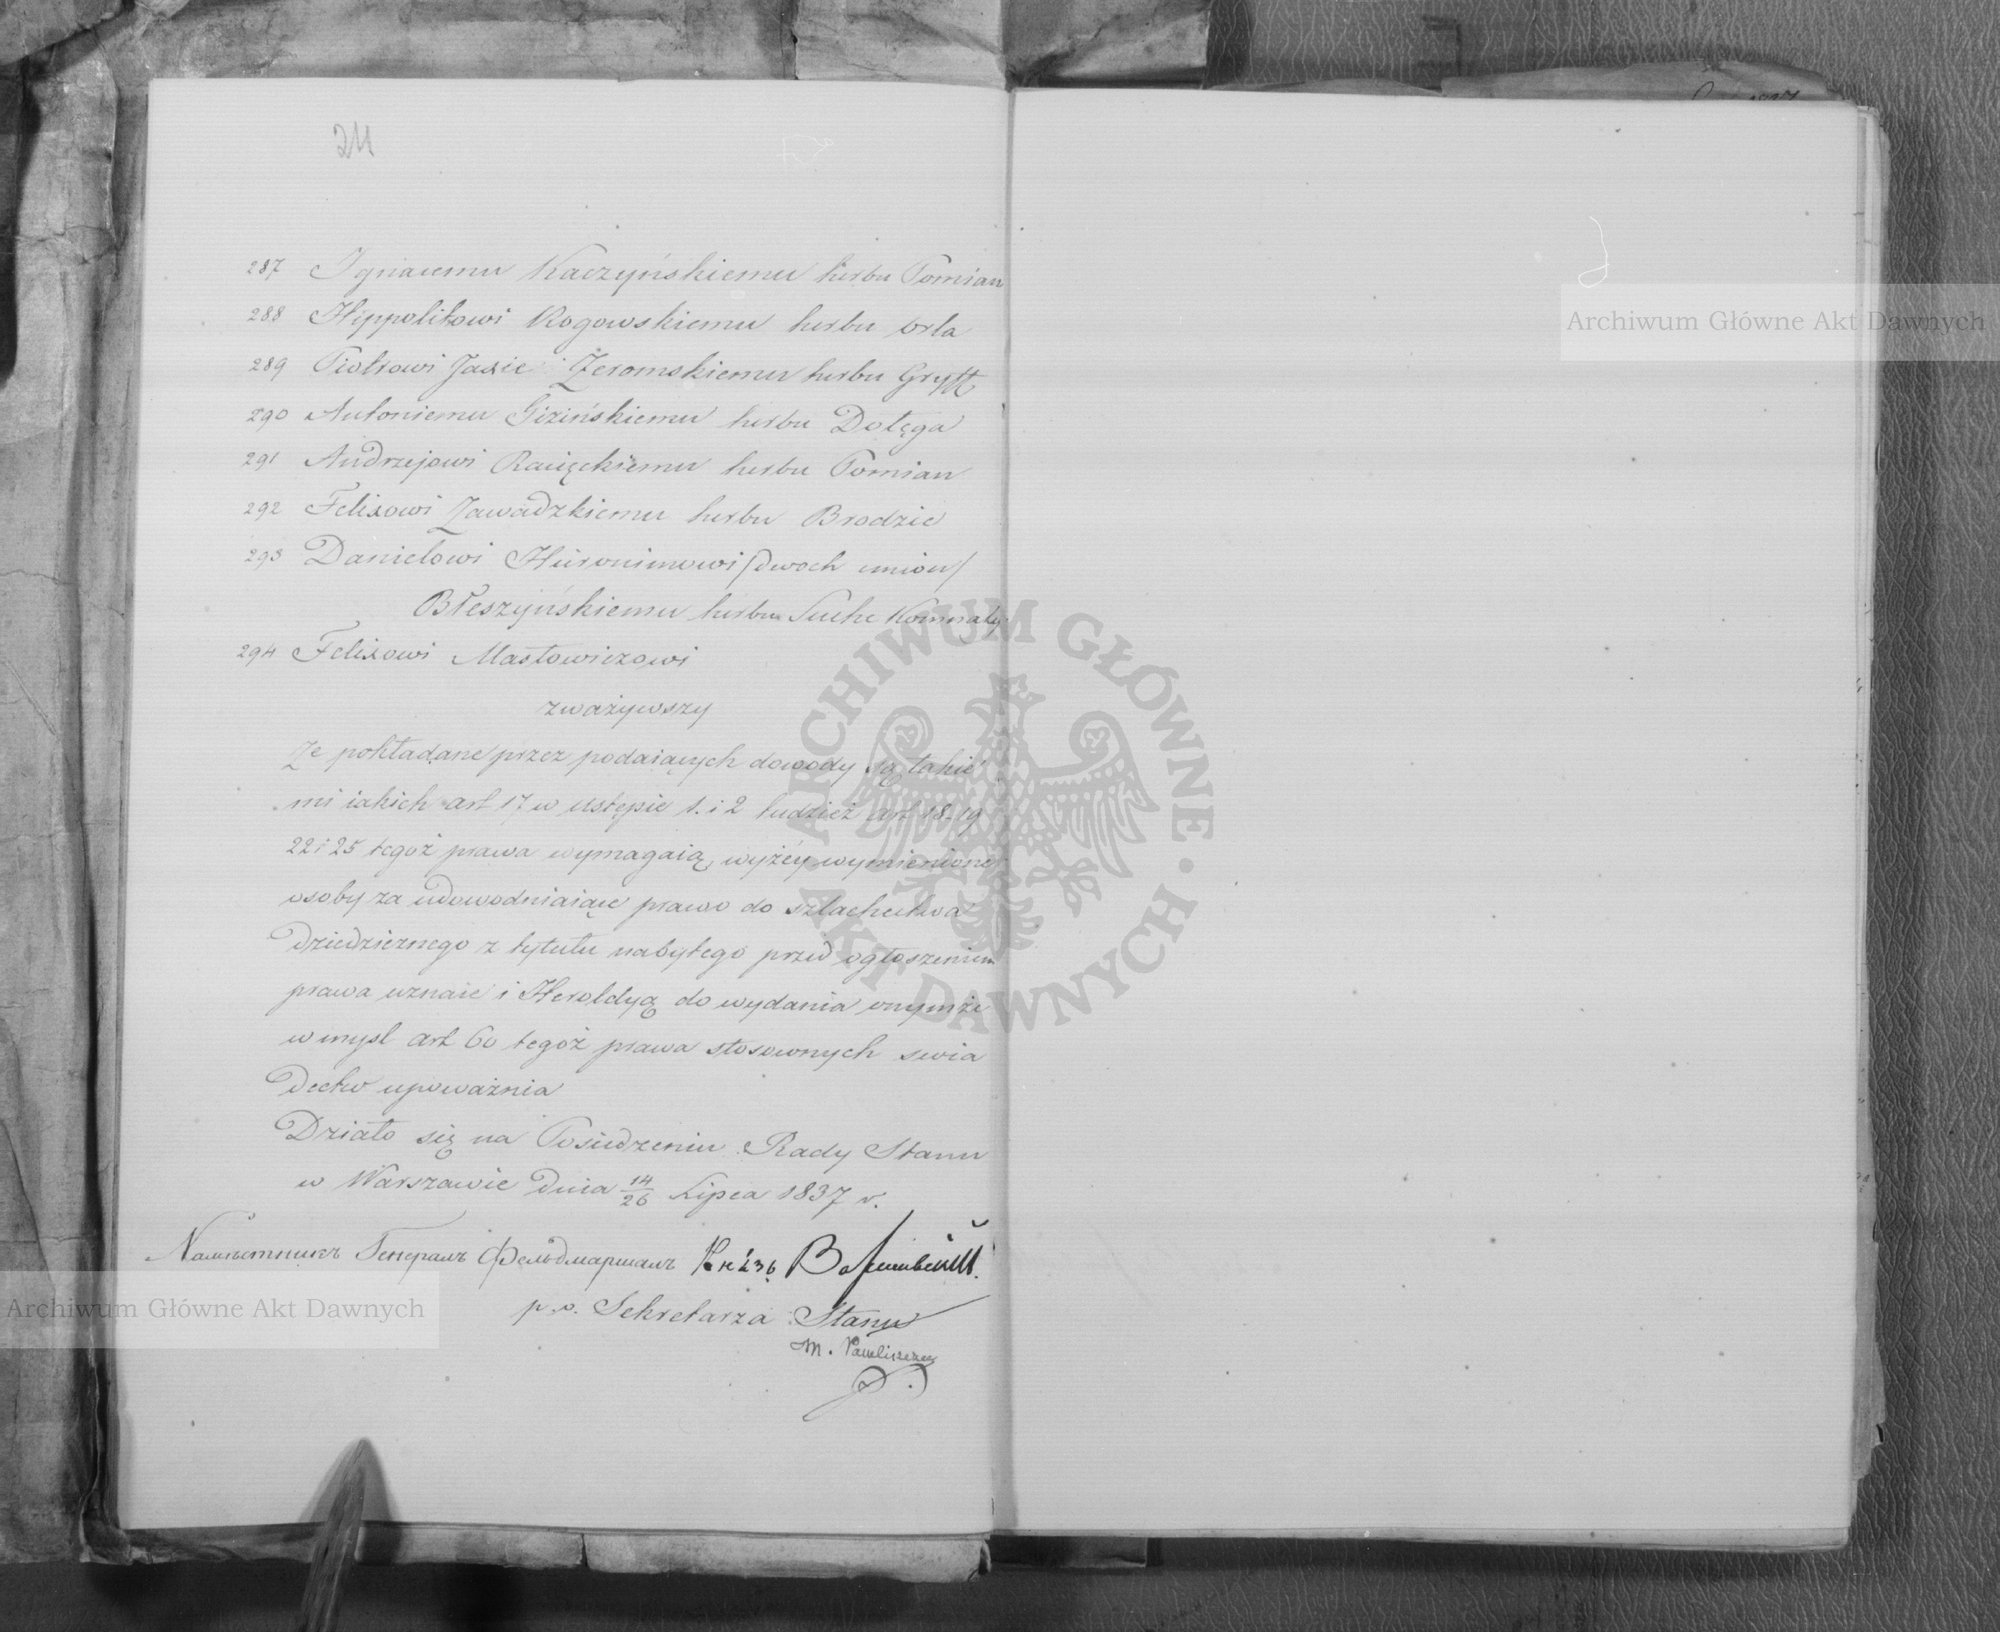 24
287 Ignacemu Kaczyńskiemu herbu Pomian
288 Hippolitowi Rogowskiemu herbu Orla
289 Piotrowi Jaxie Żeromskiemu herbu Gryff
290 Antoniemu Giżińskiemu herbu Dołęga
291 Andrzejowi Racięckiemu herbu Pomian
292 Felixowi Zawadzkiemu herbu Brodzic
293 Danielowi Hieronimowi /dwoch imion/
Błeszyńskiemu herbu Suche Komnaty
294 Felixowi Masłowiczowi
zważywszy
Że pokładane przez podaiących dowody są takie
mi iakich art 17 w ustępie 1. i 2 tudzież art 18. 19
22 i 25 tegoż prawa wymagaią, wyżéy wymienione
osoby za udowodniaiące prawo do szlachectwa
dziedzicznego z tytułu nabytego przed ogłoszeniem
prawa uznaie i Heroldyą do wydania onymże
w mysl art 60 tegoż prawa stosownych swia
dectw upoważnia
Działo się na Posiedzeniu Rady Stanu
w Warszawie dnia 14/26 Lipca 1837 r.
Намѣстникъ Генералъ Фельдмаршалъ Князь Варшавскій
p. o. Sekretarza Stanu
M. Pawliszczew
Archiwum Główne Akt Dawnych
Archiwum Główne Akt Dawnych
ARCHIWUM GŁÓWNE AKT DAWNYCH